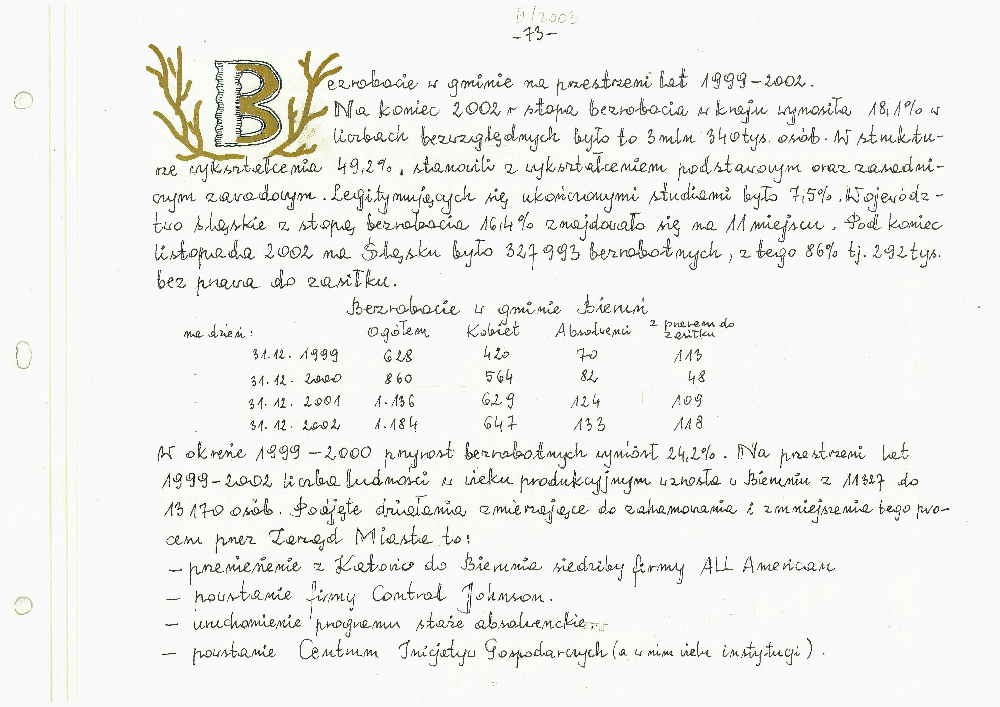 II/2003
-73-
Bezrobocie w gminie na przestrzeni lat 1999-2002.
Na koniec 2002 r stopa bezrobocia w kraju wynosiła 18,1% w
liczbach bezwzględnych było to 3 mln 340 tys. osób. W struktu-
rze wykształcenia 49,2%, stanowili z wykształceniem podstawowym oraz zasadni-
czym zawodowym. Legitymujących się ukończonymi studiami było 7,5%. Wojewódz-
two śląskie z stopą bezrobocia 16,4% znajdowało się na 11 miejscu. Pod koniec
listopada 2002 na Śląsku było 327 993 bezrobotnych, z tego 86% tj. 292 tys.
bez prawa do zasiłku.
Bezrobocie w gminie Bieruń
na dzień: Ogółem Kobiet Absolwenci z prawem do zasiłku
31.12. 1999 628 420 70 113
31.12. 2000 860 564 82 48
31.12. 2001 1.136 629 124 109
31.12. 2002 1.184 647 133 118
W okresie 1999-2000 przyrost bezrobotnych wyniósł 24,2%. Na przestrzeni lat
1999-2002 liczba ludności w wieku produkcyjnym wzrosła w Bieruniu z 11327 do
13170 osób. Podjęte działania zmierzające do zahamowania i zmniejszenia tego pro-
cesu przez Zarząd Miasta to:
- przeniesienie z Katowic do Bierunia siedziby firmy ALL American
- powstanie firmy Control Johnson.
- uruchomienie programu staże absolwenckie.
- powstanie Centrum Inicjatyw Gospodarczych (a w nim wielu instytucji).